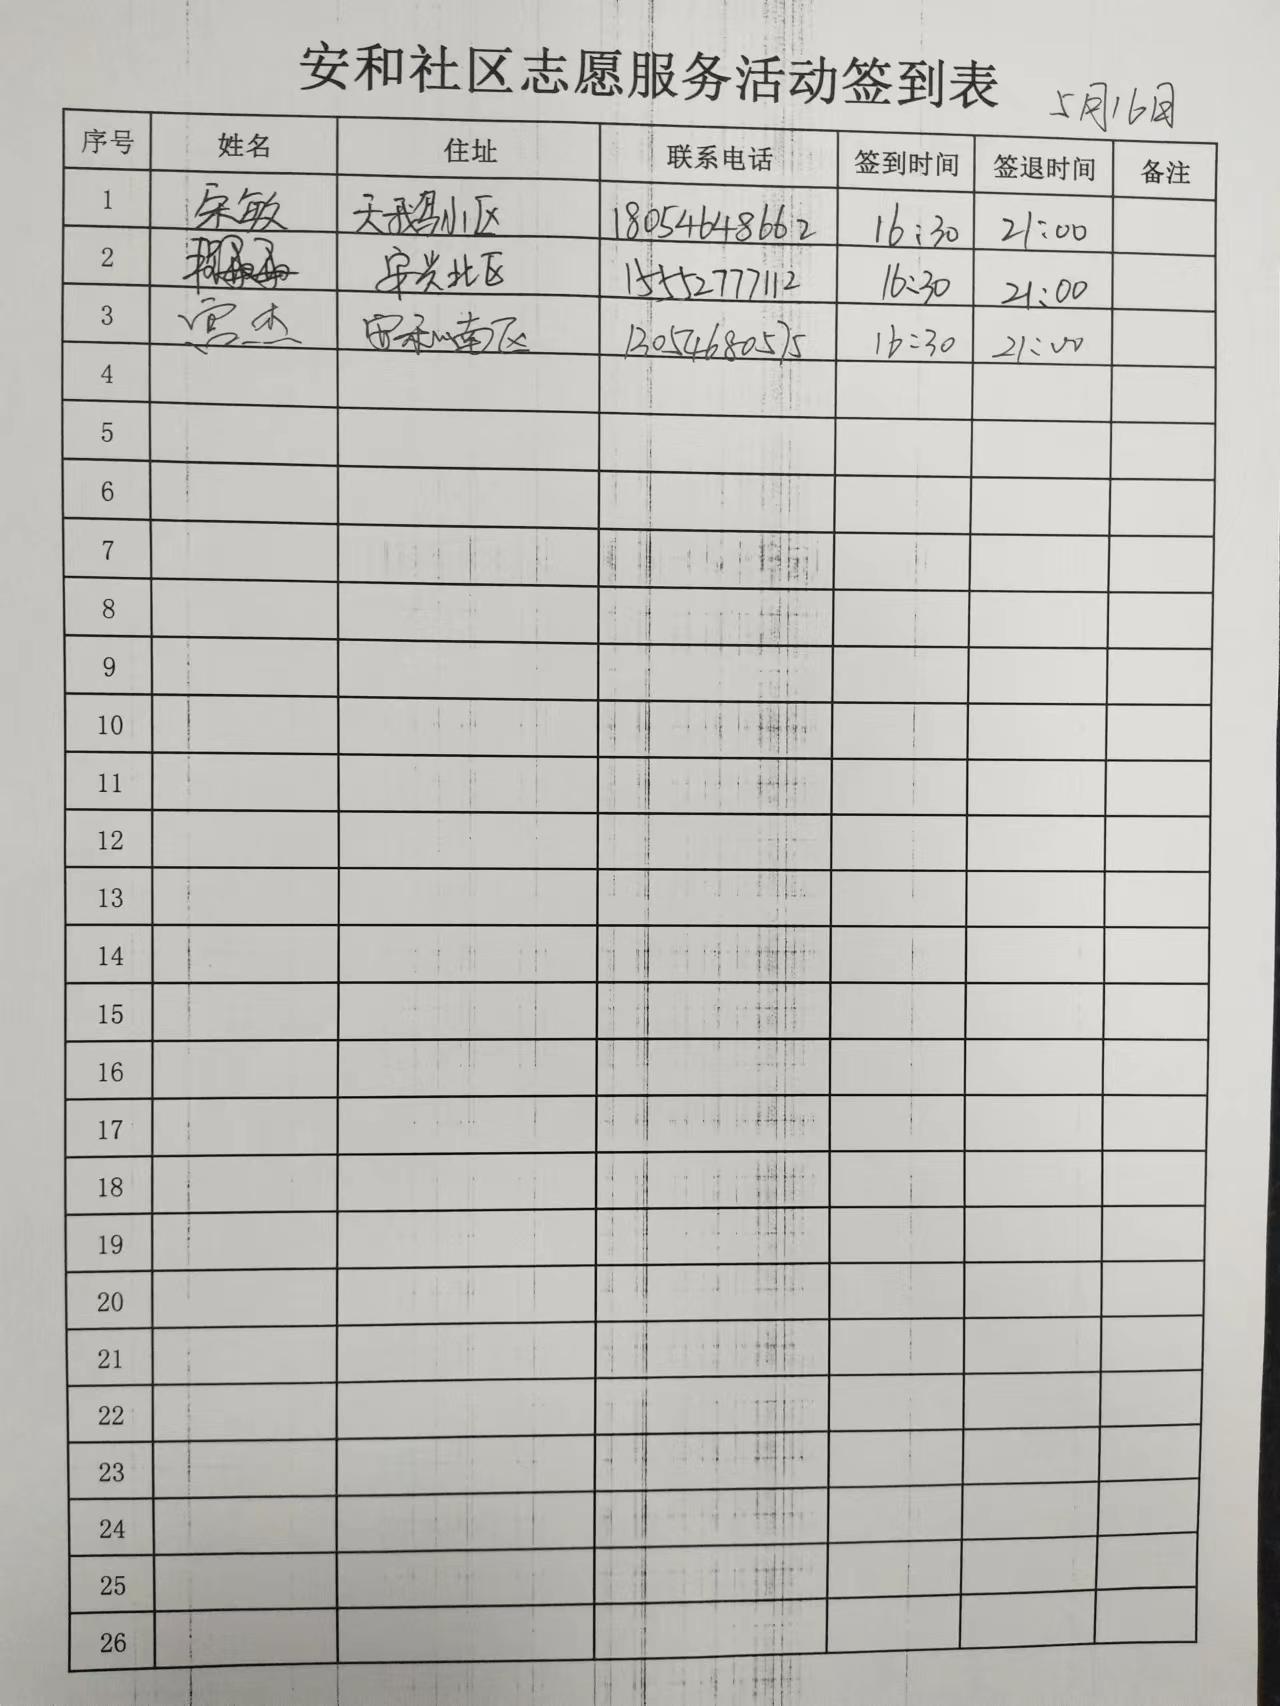 安和社区志愿服务活动签到表 5月16日
序号 姓名 住址 联系电话 签到时间 签退时间 备注
1 宋敏 天鹅小区 18054648662 16:30 21:00
2 安兴北区 15552777112 16:30 21:00
3 宫杰 安和南区 13054680575 16:30 21:00
4
5
6
7
8
9
10
11
12
13
14
15
16
17
18
19
20
21
22
23
24
25
26